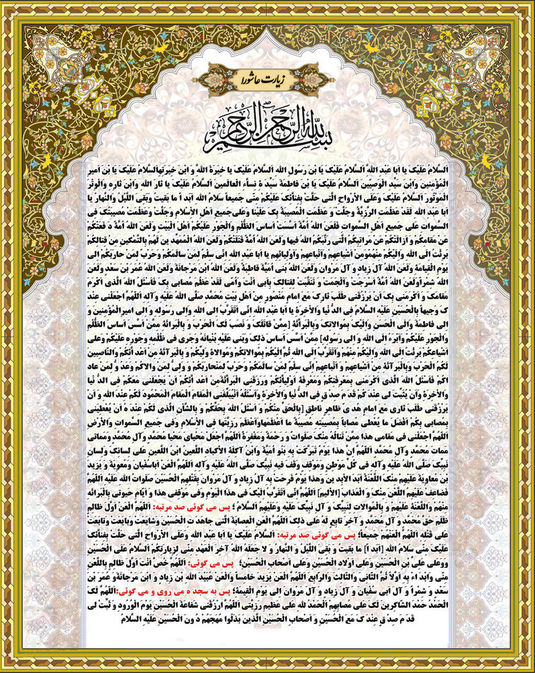 زیارت عاشورا
بسم الله الرحمن الرحیم
اَلسَّلامُ عَلَیْکَ یا اَبا عَبْدِ اللهِ اَلسَّلامُ عَلَیْکَ یَا بْنَ رَسُولِ اللهِ اَلسَّلامُ عَلَیْکَ یا خِیَرَةَ اللهِ وَ ابْنَ خِیَرَتِهِ اَلسَّلامُ عَلَیْکَ یَا بْنَ اَمیرِ
الْمُؤْمِنینَ وَابْنَ سَیِّدِ الْوَصِیّینَ اَلسَّلامُ عَلَیْکَ یَا بْنَ فاطِمَةَ سَیِّدَةِ نِساَّءِ الْعالَمینَ اَلسَّلامُ عَلَیْکَ یا ثارَ اللهِ وَابْنَ ثارِهِ وَالْوِتْرَ
الْمَوْتُورَ اَلسَّلامُ عَلَیْکَ وَعَلَی الاَْرْواحِ الَّتی حَلَّتْ بِفِناَّئِکَ عَلَیْکُمْ مِنّی جَمیعاً سَلامُ اللهِ اَبَداً ما بَقیتُ وَبَقِیَ اللَّیْلُ وَالنَّهارُ یا
اَبا عَبْدِ اللهِ لَقَدْ عَظُمَتِ الرَّزِیَّةُ وَجَلَّتْ وَ عَظُمَتِ الْمُصیبَةُ بِکَ عَلَیْنا وَعَلی جَمیعِ اَهْلِ الاِْسْلامِ وَجَلَّتْ وَعَظُمَتْ مُصیبَتُکَ فِی
السَّمواتِ عَلی جَمیعِ اَهْلِ السَّمواتِ فَلَعَنَ اللهُ اُمَّةً اَسَّسَتْ اَساسَ الظُّلْمِ وَالْجَوْرِ عَلَیْکُمْ اَهْلَ الْبَیْتِ وَلَعَنَ اللهُ اُمَّةً دَفَعَتْکُمْ
عَنْ مَقامِکُمْ وَ اَزالَتْکُمْ عَنْ مَراتِبِکُمُ الَّتی رَتَّبَکُمُ اللهُ فیها وَلَعَنَ اللهُ اُمَّةً قَتَلَتْکُمْ وَلَعَنَ اللهُ الْمُمَهِّدینَ لَهُمْ بِالتَّمْکینِ مِنْ قِتالِکُمْ
بَرِئْتُ اِلَی اللهِ وَاِلَیْکُمْ مِنْهُمْ وَمِنْ اَشْیاعِهِمْ وَاَتْباعِهِمْ وَاَوْلِیاَّئِهِم یا اَبا عَبْدِ اللهِ اِنّی سِلْمٌ لِمَنْ سالَمَکُمْ وَحَرْبٌ لِمَنْ حارَبَکُمْ اِلی
یَوْمِ الْقِیامَةِ وَلَعَنَ اللهُ آلَ زِیادٍ وَ آلَ مَرْوانَ وَلَعَنَ اللهُ بَنی اُمَیَّةَ قاطِبَةً وَلَعَنَ اللهُ ابْنَ مَرْجانَةَ وَلَعَنَ اللهُ عُمَرَ بْنَ سَعْدٍ وَلَعَنَ
اللهُ شِمْراً وَلَعَنَ اللهُ اُمَّةً اَسْرَجَتْ وَاَلْجَمَتْ وَ تَنَقَّبَتْ لِقِتالِکَ بِاَبی اَنْتَ وَاُمّی لَقَدْ عَظُمَ مُصابی بِکَ فَاَسْئَلُ اللهَ الَّذی اَکْرَمَ
مَقامَکَ وَ اَکْرَمَنی بِکَ اَنْ یَرْزُقَنی طَلَبَ ثارِکَ مَعَ اِمامٍ مَنْصُورٍ مِنْ اَهْلِ بَیْتِ مُحَمَّدٍ صَلَّی اللهُ عَلَیْهِ وَآلِهِ اَللّهُمَّ اجْعَلْنی عِنْدَ
کَ وَجیهاً بِالْحُسَیْنِ عَلَیْهِ السَّلامُ فِی الدُّنْیا وَالاْخِرَةِ یا اَبا عَبْدِ اللهِ اِنّی اَتَقَرَّبُ اِلی اللهِ وَ اِلی رَسُولِهِ وَ اِلی امیرِالْمُؤْمِنینَ وَ
اِلی فاطِمَةَ وَاِلَی الْحَسَنِ وَاِلَیْکَ بِمُوالاتِکَ وَبِالْبَراَّئَةِ [مِمَّنْ قاتَلَکَ وَ نَصَبَ لَکَ الْحَرْبَ وَ بِالْبَرائَةِ مِمَّنْ اَسَّسَ اَساسَ الظُّلْمِ
وَالْجَوْرِ عَلَیْکُمْ وَاَبْرَءُ اِلَی اللهِ وَ اِلی رَسُولِهِ] مِمَّنْ اَسَسَّ اَساسَ ذلِکَ وَبَنی عَلَیْهِ بُنْیانَهُ وَجَری فی ظُلْمِهِ وَجَوْرِهِ عَلَیْکُمْ وَعَلی
اَشْیاعِکُمْ بَرِئْتُ اِلَی اللهِ وَاِلَیْکُمْ مِنْهُمْ وَاَتَقَرَّبُ اِلَی اللهِ ثُمَّ اِلَیْکُمْ بِمُوالاتِکُمْ وَمُوالاةِ وَلِیِّکُمْ وَ بِالْبَرائَةِ مِنْ اَعْداَّئِکُمْ وَالنّاصِبینَ
لَکُمُ الْحَرْبَ وَبِالْبَرائَةِ مِنْ اَشْیاعِهِمْ وَ اَتْباعِهِمْ اِنّی سِلْمٌ لِمَنْ سالَمَکُمْ وَحَرْبٌ لِمَنْ حارَبَکُمْ وَ وَلِیٌّ لِمَنْ والاکُمْ وَعَدُوٌّ لِمَنْ عادا
کُمْ فَاَسْئَلُ اللهَ الَّذی اَکْرَمَنی بِمَعْرِفَتِکُمْ وَمَعْرِفَةِ اَوْلِیاَّئِکُمْ وَرَزَقَنِی الْبَراَّئَةَ مِنْ اَعْداَّئِکُمْ اَنْ یَجْعَلَنی مَعَکُمْ فِی الدُّنْیا
وَالاْخِرَةِ وَاَنْ یُثَبِّتَ لی عِنْدَکُمْ قَدَمَ صِدْقٍ فِی الدُّنْیا وَالاْخِرَةِ وَاَسْئَلُهُ اَنْ یُبَلِّغَنِی الْمَقامَ الْمَحْمُودَ لَکُمْ عِنْدَ اللهِ وَ اَنْ
یَرْزُقَنی طَلَبَ ثاری مَعَ اِمامٍ هُدیً ظاهِرٍ ناطِقٍ [بِالْحَقِّ مِنْکُمْ وَ اَسْئَلُ اللهَ بِحَقِّکُمْ وَ بِالشَّاْنِ الَّذی لَکُمْ عِنْدَهُ اَنْ یُعْطِیَنی
بِمُصابی بِکُمْ اَفْضَلَ ما یُعْطی مُصاباً بِمُصیبَتِهِ مُصیبَةً ما اَعْظَمَها وَاَعْظَمَ رَزِیَّتَها فِی الاِْسْلامِ وَفی جَمیعِ السَّمواتِ وَالاْرْضِ
اَللّهُمَّ اجْعَلْنی فی مَقامی هذا مِمَّنْ تَنالُهُ مِنْکَ صَلَواتٌ وَ رَحْمَةٌ وَمَغْفِرَةٌ اَللّهُمَّ اجْعَلْ مَحْیایَ مَحْیا مُحَمَّدٍ وَ آلِ مُحَمَّدٍ وَمَماتی
مَماتَ مُحَمَّدٍ وَآلِ مُحَمَّدٍ اَللّهُمَّ اِنَّ هذا یَومٌ تَبَرَّکَتْ بِهِ بَنُو اُمَیَّةَ وَابْنُ آکِلَةِ الاَْکبادِ اللَّعینُ ابْنُ اللَّعینِ عَلی لِسانِکَ وَلِسانِ
نَبِیِّکَ صَلَّی اللهُ عَلَیْهِ وَآلِهِ فی کُلِّ مَوْطِنٍ وَمَوْقِفٍ وَقَفَ فیهِ نَبِیُّکَ صَلَّی اللهُ عَلَیْهِ وَآلِهِ اَللّهُمَّ الْعَنْ اَباسُفْیانَ وَمُعاوِیَةَ وَ یَزیدَ
بْنَ مُعاوِیَةَ عَلَیْهِمْ مِنْکَ اللَّعْنَةُ اَبَدَ الاْبِدینَ وَهذا یَوْمٌ فَرِحَتْ بِهِ آلُ زِیادٍ وَ آلُ مَرْوانَ بِقَتْلِهِمُ الْحُسَیْنَ صَلَواتُ اللهِ عَلَیْهِ اَللّهُمَّ
فَضاعِفْ عَلَیْهِمُ اللَّعْنَ مِنْکَ وَ الْعَذابَ [الاَْلیمَ] اَللّهُمَّ اِنّی اَتَقَرَّبُ اِلَیْکَ فی هذَا الْیَوْمِ وَفی مَوْقِفی هذا وَ اَیّامِ حَیوتی بِالْبَرائَةِ
مِنْهُمْ وَاللَّعْنَةِ عَلَیْهِمْ وَ بِالْمُوالاتِ لِنَبِیِّکَ وَ آلِ نَبِیِّکَ عَلَیْهِ وَعَلَیْهِمُ السَّلامُ ؛ پس می گوئی صد مرتبه: اَللّهُمَّ الْعَنْ اَوَّلَ ظالِمٍ
ظَلَمَ حَقَّ مُحَمَّدٍ وَ آلِ مُحَمَّدٍ وَ آخِرَ تابِعٍ لَهُ عَلی ذلِکَ اَللّهُمَّ الْعَنِ الْعِصابَةَ الَّتی جاهَدَتِ الْحُسَیْنَ وَشایَعَتْ وَبایَعَتْ وَتابَعَتْ
عَلی قَتْلِهِ اَللّهُمَّ الْعَنْهُمْ جَمیعاً؛ پس می گوئی صد مرتبه: اَلسَّلامُ عَلَیْکَ یا اَبا عَبْدِ اللهِ وَعَلَی الاَْرْواحِ الَّتی حَلَّتْ بِفِناَّئِکَ
عَلَیْکَ مِنّی سَلامُ اللهِ [اَبَداً] ما بَقیتُ وَ بَقِیَ اللَّیْلُ وَ النَّهارُ وَ لا جَعَلَهُ اللهُ آخِرَ الْعَهْدِ مِنّی لِزِیارَتِکُمْ اَلسَّلامُ عَلَی الْحُسَیْنِ
وَعَلی عَلِیِّ بْنِ الْحُسَیْنِ وَعَلی اَوْلادِ الْحُسَیْنِ وَعَلی اَصْحابِ الْحُسَیْنِ؛ پس می گوئی: اَللّهُمَّ خُصَّ اَنْتَ اَوَّلَ ظالِمٍ بِاللَّعْنِ
مِنّی وَابْدَاءْ بِهِ اَوَّلاً ثُمَّ الثّانِیَ وَالثّالِثَ وَالرّابِعَ اَللّهُمَّ الْعَنْ یَزیدَ خامِساً وَالْعَنْ عُبَیْدَ اللهِ بْنَ زِیادٍ وَ ابْنَ مَرْجانَةَ وَ عُمَرَ بْنَ
سَعْدٍ وَ شِمْراً وَ آلَ اَبی سُفْیانَ وَ آلَ زِیادٍ وَ آلَ مَرْوانَ اِلی یَوْمِ الْقِیمَةِ؛ پس به سجده می روی و می گوئی: اَللّهُمَّ لَکَ
الْحَمْدُ حَمْدَ الشّاکِرینَ لَکَ عَلی مُصابِهِمْ اَلْحَمْدُ للهِ عَلی عَظیمِ رَزِیَّتی اَللّهُمَّ ارْزُقْنی شَفاعَةَ الْحُسَیْنِ یَوْمَ الْوُرُودِ وَ ثَبِّتْ لی
قَدَمَ صِدْقٍ عِنْدَکَ مَعَ الْحُسَیْنِ وَ اَصْحابِ الْحُسَیْنِ الَّذینَ بَذَلُوا مُهَجَهُمْ دُونَ الْحُسَیْنِ عَلَیْهِ السَّلامُ